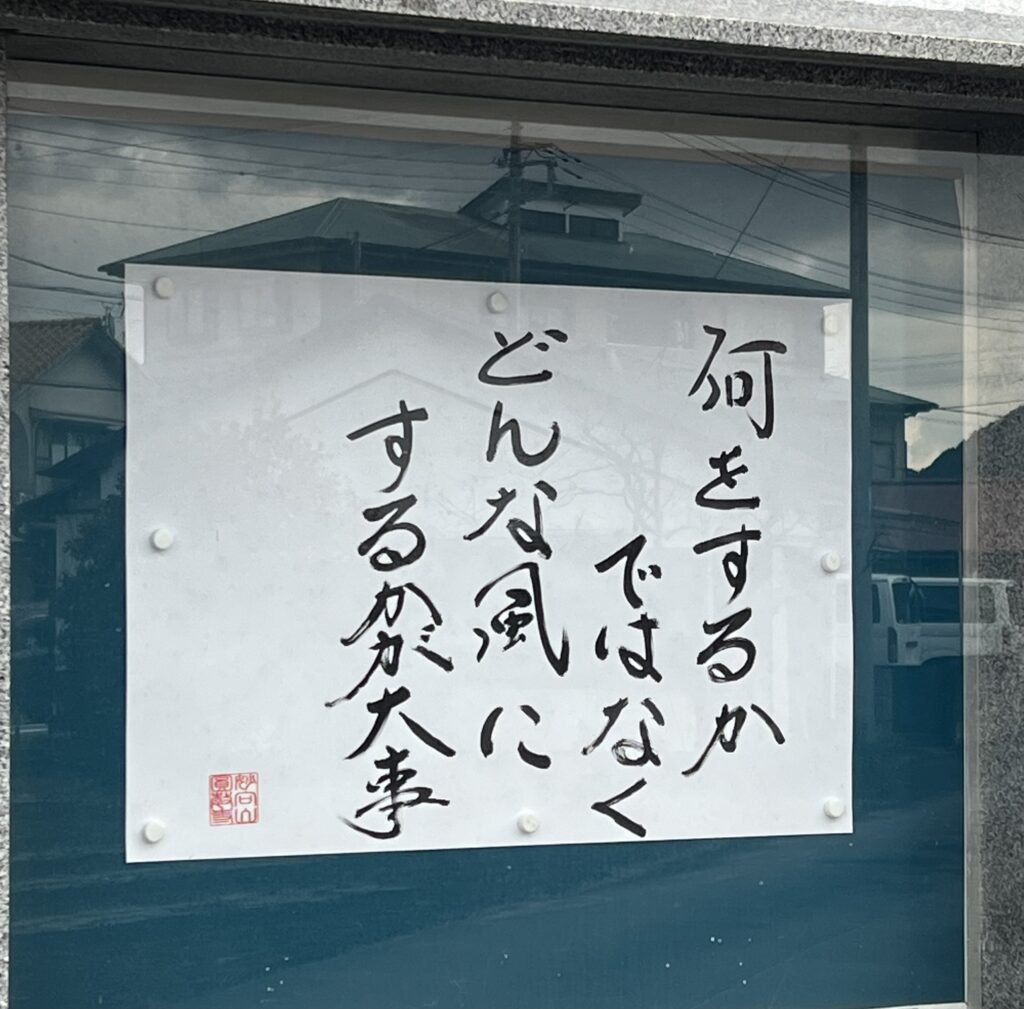 何をするか
ではなく
どんな風に
するかが大事